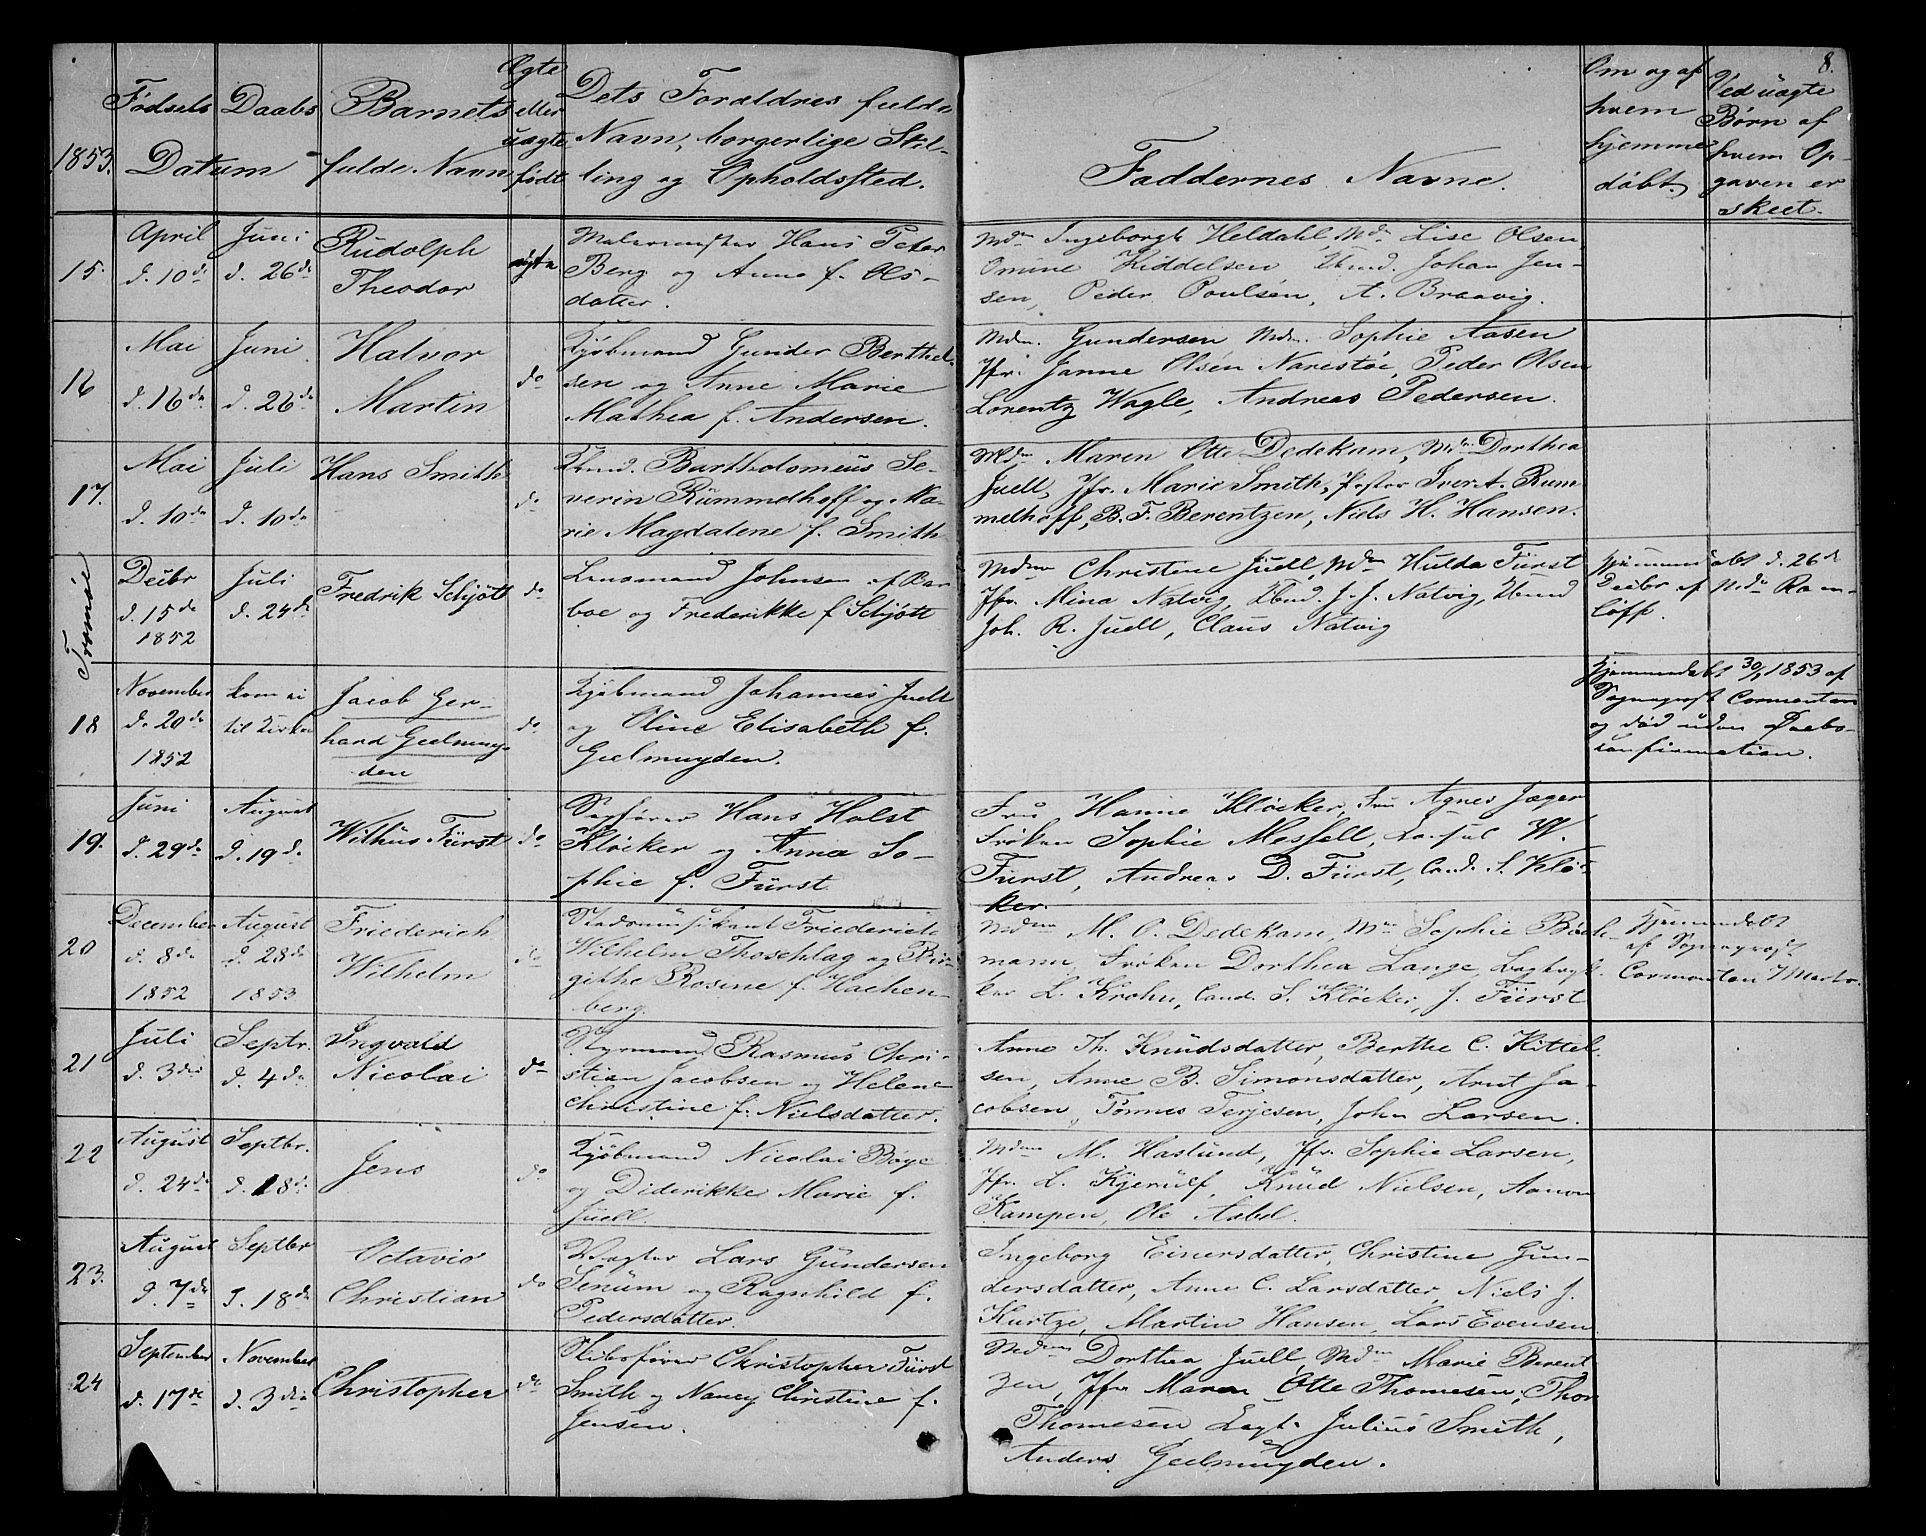 8.
1853.
Fødsels Daabs
Datum
Barnets
fulde Navn
Ægte
eller
uægte
født
Dets Forældres fulde
Navn, borgerlige Stil-
ling og Opholdssted.
Faddernes Navne.
Om og af
hvem
hjemme
døbt.
Ved uægte
Børn af
hvem Op-
gaven er
skeet.
15.
April
d. 10de
Juni
d. 26de
Rudolph
Theodor
ægte
Malermester Hans Peter
Berg og Anne f. Ols-
datter.
Mdm Ingeborg Heldahl, Mdm Lise Olsen
Omine Kiddelsen Johan Jen-
sen, Peder Poulsen, A. Braavig.
16
Mai
d. 16de
Juni
d. 26de
Halvor
Martin
do
Kjøbmand Gunder Berthel-
sen og Anne Marie
Mathea f. Andersen.
Mdm. Gundersen Mdm. Sophie Aasen
Jfr. Janne Olsen Narestøe, Peder Olsen
Lorentz Wagle, Andreas Pedersen.
17.
Mai
d. 10de
Juli
d. 10de
Hans Smith
do
Bartholomeus Se-
verin Rummelhoff og Ma-
rie Magdalene f. Smith
Mdm Maren Otte Dedekam, Mdm Dorthea
Juell, Jfr. Marie Smith, Iver A. Rum
melhoff, B. F. Berentzen, Niels H. Hansen.
Tromøe
Decbr
d. 15de
1852
Juli
d. 24de
Fredrik Schjøtt
do
Lensmand Johnsen af Bar
boe og Frederikke f. Schjøtt
Mdm Christine Juell, Mdm Hulda Fürst
Jfr. Mina Natvig, J. J. Natvig,
Joh. R. Juell, Claus Natvig
Hjemmedøbt d. 26de
Decbr af Ram-
løff.
18
November
d. 20de
1852
kom ei
til Kirken
Jacob Ger-
hard Geelmuy-
den
do
Kjøbmand Johannes Juell
og Oline Elisabeth f.
Geelmuyden.
Hjemmedøbt 30/1 1853 af
Sognepræst Cormontan
og død uden Daabs-
confirmation.
19.
Juni
d. 29de
August
d. 19de
Wilhus Fürst
do
Sagfører Hans Holst
Kløcker og Anna So-
phie f. Fürst
Fru Hanne Kløcker, Fru Agnes Jæger
Frøken Sophie Mossell, Consul W.
Fürst, Andreas D. Fürst, Cand. S. Klö-
ker.
20
December
d. 8de
1852
August
d. 28de
1853
Friederich
Wilhelm
do
Stadsmusikant Friederich
Wilhelm Thoschlag og Bir-
githe Rosine f. Hachen-
berg.
Mdm M. O. Dedekam, Mdm Sophie Bach-
mann, Frøken Dorthea Lange,
L. Krohn, Cand. S. Kløcker, J. Fürst
Hjemmedøbt
af Sognepræst
Cormontan 7 Marts.
21
Juli
d. 3die
Septr.
d. 4de
Ingvald
Nicolai
do
Styrmand Rasmus Chri-
stian Jacobsen og Helene
Christine f. Nielsdatter.
Anne Th. Knudsdatter, Berthe C. Kittel-
sen, Anne B. Simonsdatter, Arnt Ja-
cobsen, Tønnes Terjesen, John Larsen.
22
August
d. 24de
Septbr.
d. 18de
Jens
do
Kjøbmand Nicolai Bøye
og Diderikke Marie f.
Juell.
Mdm M. Haslund, Jfr. Sophie Larsen,
Jfr. L. Kjerulf, Knud Nielsen, Aanon
Kampen, Ole Aabel.
23.
August
d. 7de
Septbr
d. 18de
Octavio
Christian
do
Vægter Lars Gundersen
Senum og Ragnhild f.
Pedersdatter.
Ingeborg Einersdatter, Christine Gun-
dersdatter, Anne C. Larsdatter, Niels J.
Kurtze, Martin Hansen, Lars Evensen
24
September
d. 17de
November
d. 3die
Christopher
do
Skibsfører Christopher Fürst
Smith og Nancy Christine f.
Jensen.
Mdm Dorthea Juell, Mdm Marie Berent
zen, Jfr. Maren Otte Thomesen, Thor
Thomesen, Capt. Julius Smith,
Anders Geelmuyden.